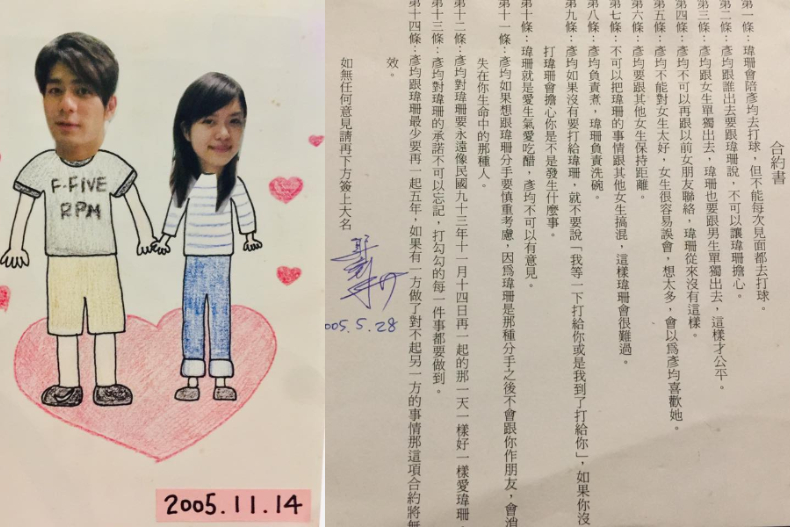 F-FIVE
RPM
2005.11.14
合約書
第一條：瑋珊會陪彥均去打球，但不能每次見面都去打球。
第二條：彥均跟誰出去要跟瑋珊說，不可以讓瑋珊擔心。
第三條：彥均跟女生單獨出去，瑋珊也要跟男生單獨出去，這樣才公平。
第四條：彥均不可以再跟以前女朋友聯絡，瑋珊從來沒有這樣。
第五條：彥均不能對女生太好，女生很容易誤會，想太多，會以為彥均喜歡她。
第六條：彥均要跟其他女生保持距離。
第七條：不可以把瑋珊的事情跟其他女生搞混，這樣瑋珊會很難過。
第八條：彥均負責煮，瑋珊負責洗碗。
第九條：彥均如果沒有要打給瑋珊，就不要說「我等一下打給你或是我到了打給你」，如果你沒
打瑋珊會擔心你是不是發生什麼事。
第十條：瑋珊就是愛生氣愛吃醋，彥均不可以有意見。
第十一條：彥均如果想跟瑋珊分手要慎重考慮，因為瑋珊是那種分手之後不會跟你作朋友，會消
失在你生命中的那種人。
第十二條：彥均對瑋珊要永遠像民國九十三年十一月十四日再一起的那一天一樣好一樣愛瑋珊
第十三條：彥均對瑋珊的承諾不可以忘記，打勾勾的每一件事都要做到。
第十四條：彥均跟瑋珊最少要再一起五年，如果有一方做了對不起另一方的事情那這項合約將無
效。
如無任何意見請再下方簽上大名
005.5.28